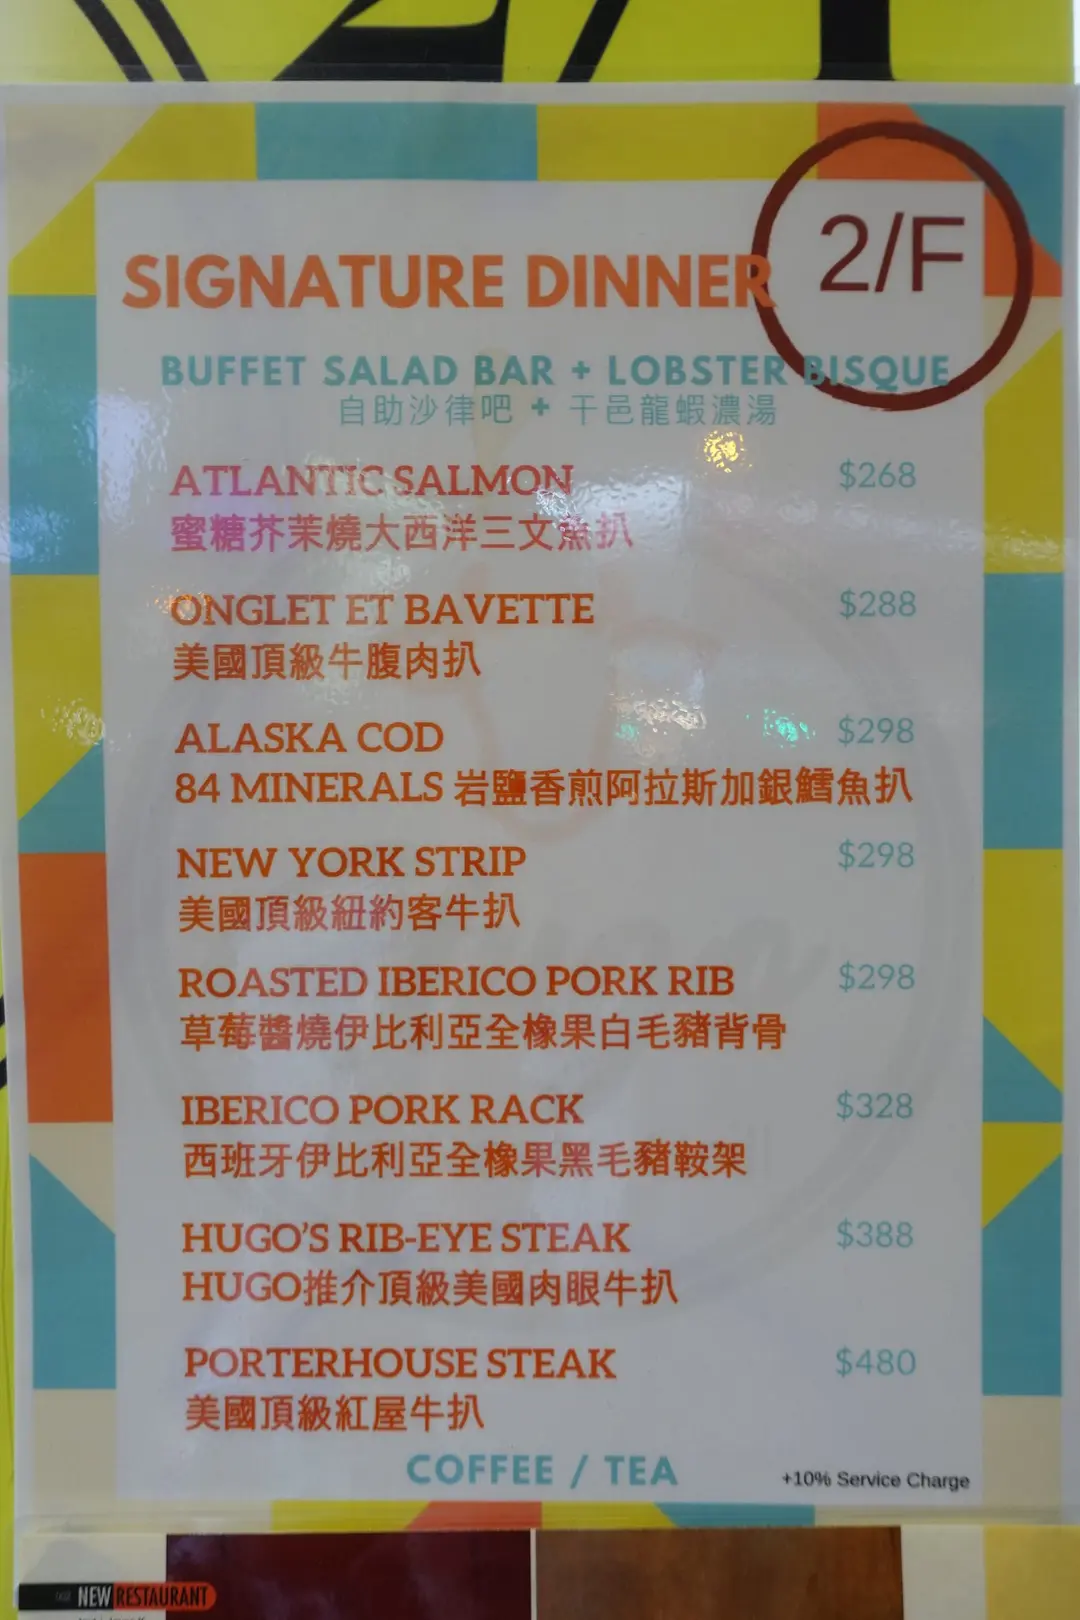 2/F
SIGNATURE DINNER
BUFFET SALAD BAR + LOBSTER BISQUE
自助沙律吧 + 干邑龍蝦濃湯
ATLANTIC SALMON $268
蜜糖芥茉燒大西洋三文魚扒
ONGLET ET BAVETTE $288
美國頂級牛腹肉扒
ALASKA COD $298
84 MINERALS 岩鹽香煎阿拉斯加銀鱈魚扒
NEW YORK STRIP $298
美國頂級紐約客牛扒
ROASTED IBERICO PORK RIB $298
草莓醬燒伊比利亞全橡果白毛豬背骨
IBERICO PORK RACK $328
西班牙伊比利亞全橡果黑毛豬鞍架
HUGO'S RIB-EYE STEAK $388
HUGO推介頂級美國肉眼牛扒
PORTERHOUSE STEAK $480
美國頂級紅屋牛扒
COFFEE / TEA
+10% Service Charge
NEW RESTAURANT